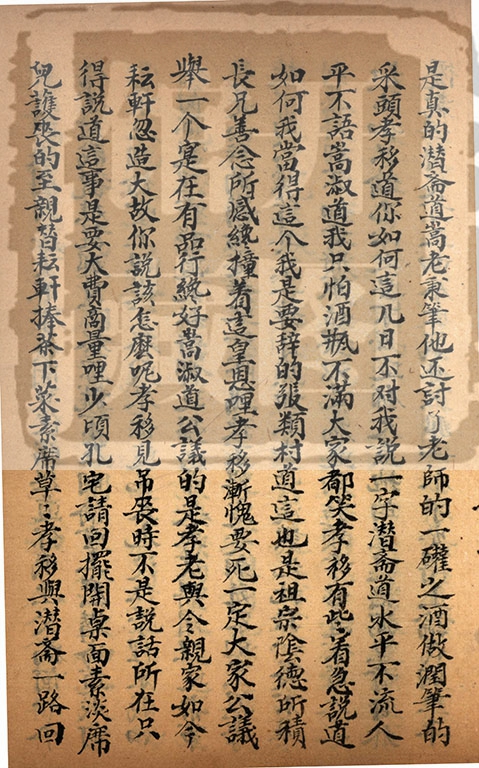 是真的潜斋道嵩老秉筆他还討了老師的一礶之酒做潤筆的
采頭孝移道你如何這几日不对我說一字潜斋道水平不流人
平不語嵩淑道我只怕酒瓶不滿大家都笑孝移有些着急說道
如何我當得這个我是要辞的張類村道這也是祖宗陰德所積
長兄善念所感終撞着這皇恩哩孝移漸愧要死一定大家公議
舉一个寔在有品行終好嵩淑道公議的是孝老與令親家如今
耘軒忽造大故你說該怎麽呢孝移見吊丧時不是說話所在只
得說道這事是要大費商量哩少頃孔宅請回擺開桌面素淡席
兒護丧的至親替耘軒捧茶下菜素席草〻孝移與潜斋一路回